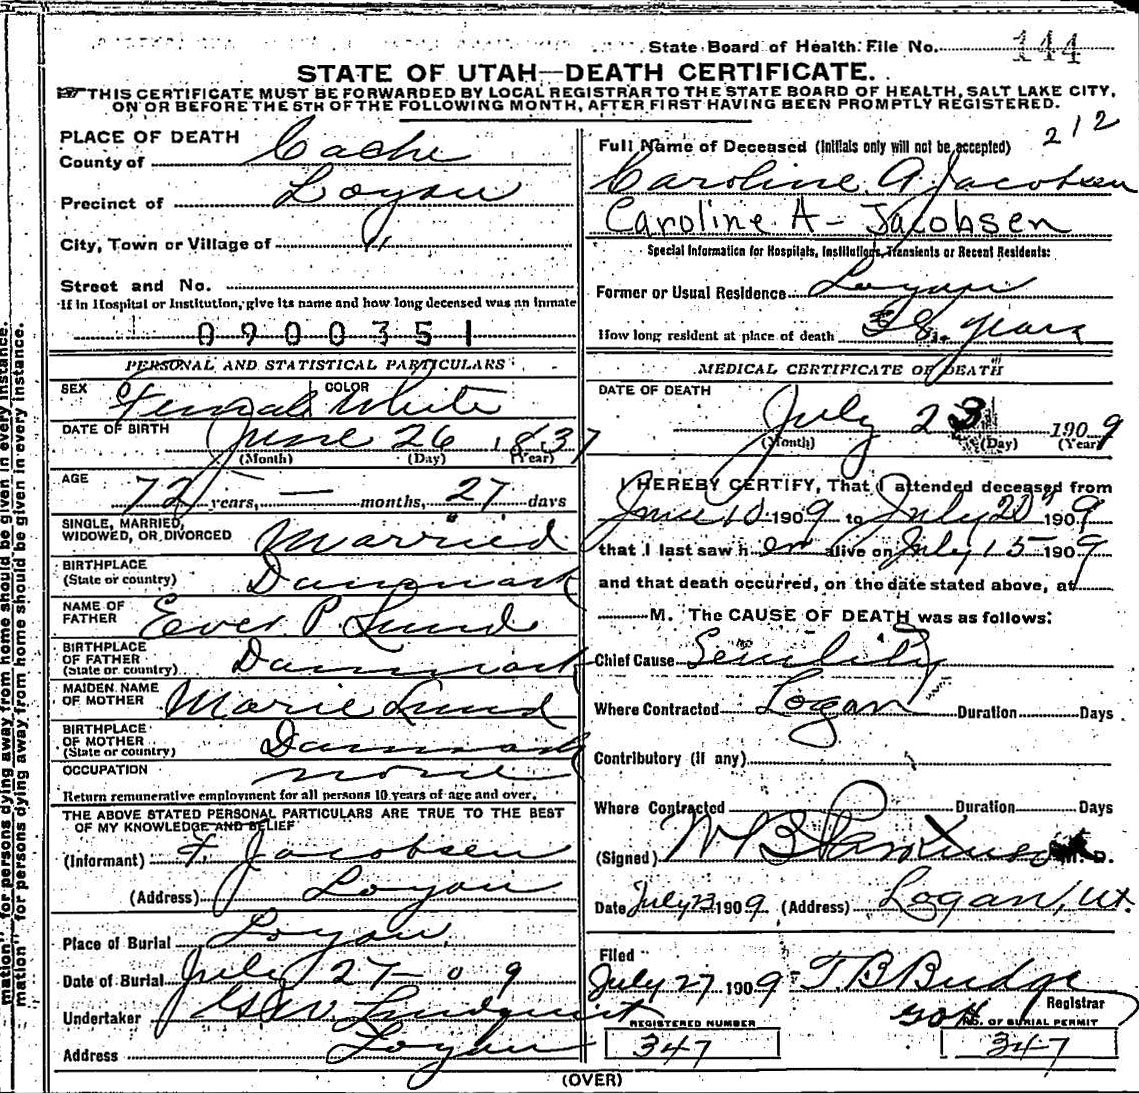 State Board of Health File No. 144
STATE OF UTAH—DEATH CERTIFICATE.
THIS CERTIFICATE MUST BE FORWARDED BY LOCAL REGISTRAR TO THE STATE BOARD OF HEALTH, SALT LAKE CITY,
ON OR BEFORE THE 5TH OF THE FOLLOWING MONTH, AFTER FIRST HAVING BEEN PROMPTLY REGISTERED.
212
PLACE OF DEATH
County of Cache
Precinct of Logan
City, Town or Village of "
Street and No.
If in Hospital or Institution, give its name and how long deceased was an inmate
0900351
PERSONAL AND STATISTICAL PARTICULARS
SEX Female COLOR White
DATE OF BIRTH June 26 1837
(Month) (Day) (Year)
AGE 72 years, — months, 27 days
SINGLE, MARRIED, WIDOWED, OR DIVORCED Married
BIRTHPLACE (State or country) Danmark
NAME OF FATHER Ever P Lund
BIRTHPLACE OF FATHER (State or country) Danmark
MAIDEN NAME OF MOTHER Marie Lund
BIRTHPLACE OF MOTHER (State or country) Danmark
OCCUPATION none
Return remunerative employment for all persons 10 years of age and over.
THE ABOVE STATED PERSONAL PARTICULARS ARE TRUE TO THE BEST
OF MY KNOWLEDGE AND BELIEF
(Informant) F. Jacobsen
(Address) Logan
Place of Burial Logan
Date of Burial July 27 - 09
Undertaker Lundquist
Address Logan
Full Name of Deceased (Initials only will not be accepted)
Caroline A Jacobsen
Caroline A - Jacobsen
Special Information for Hospitals, Institutions, Transients or Recent Residents:
Former or Usual Residence Logan
How long resident at place of death 38 years
MEDICAL CERTIFICATE OF DEATH
DATE OF DEATH
July 23 1909
(Month) (Day) (Year)
I HEREBY CERTIFY, That I attended deceased from
June 10 1909 to July 20" 1909
that I last saw her alive on July 15 1909
and that death occurred, on the date stated above, at
M. The CAUSE OF DEATH was as follows:
Chief Cause Senility
Where Contracted Logan Duration Days
Contributory (if any)
Where Contracted Duration Days
(Signed) W B Parkinson M. D.
Date July 23 1909 (Address) Logan, Ut.
Filed
July 27 1909 T. B Budge
Registrar
REGISTERED NUMBER 347
NO. OF BURIAL PERMIT 347
(OVER)
mation" for persons dying away from home should be given in every instance.
mation" for persons dying away from home should be given in every instance.